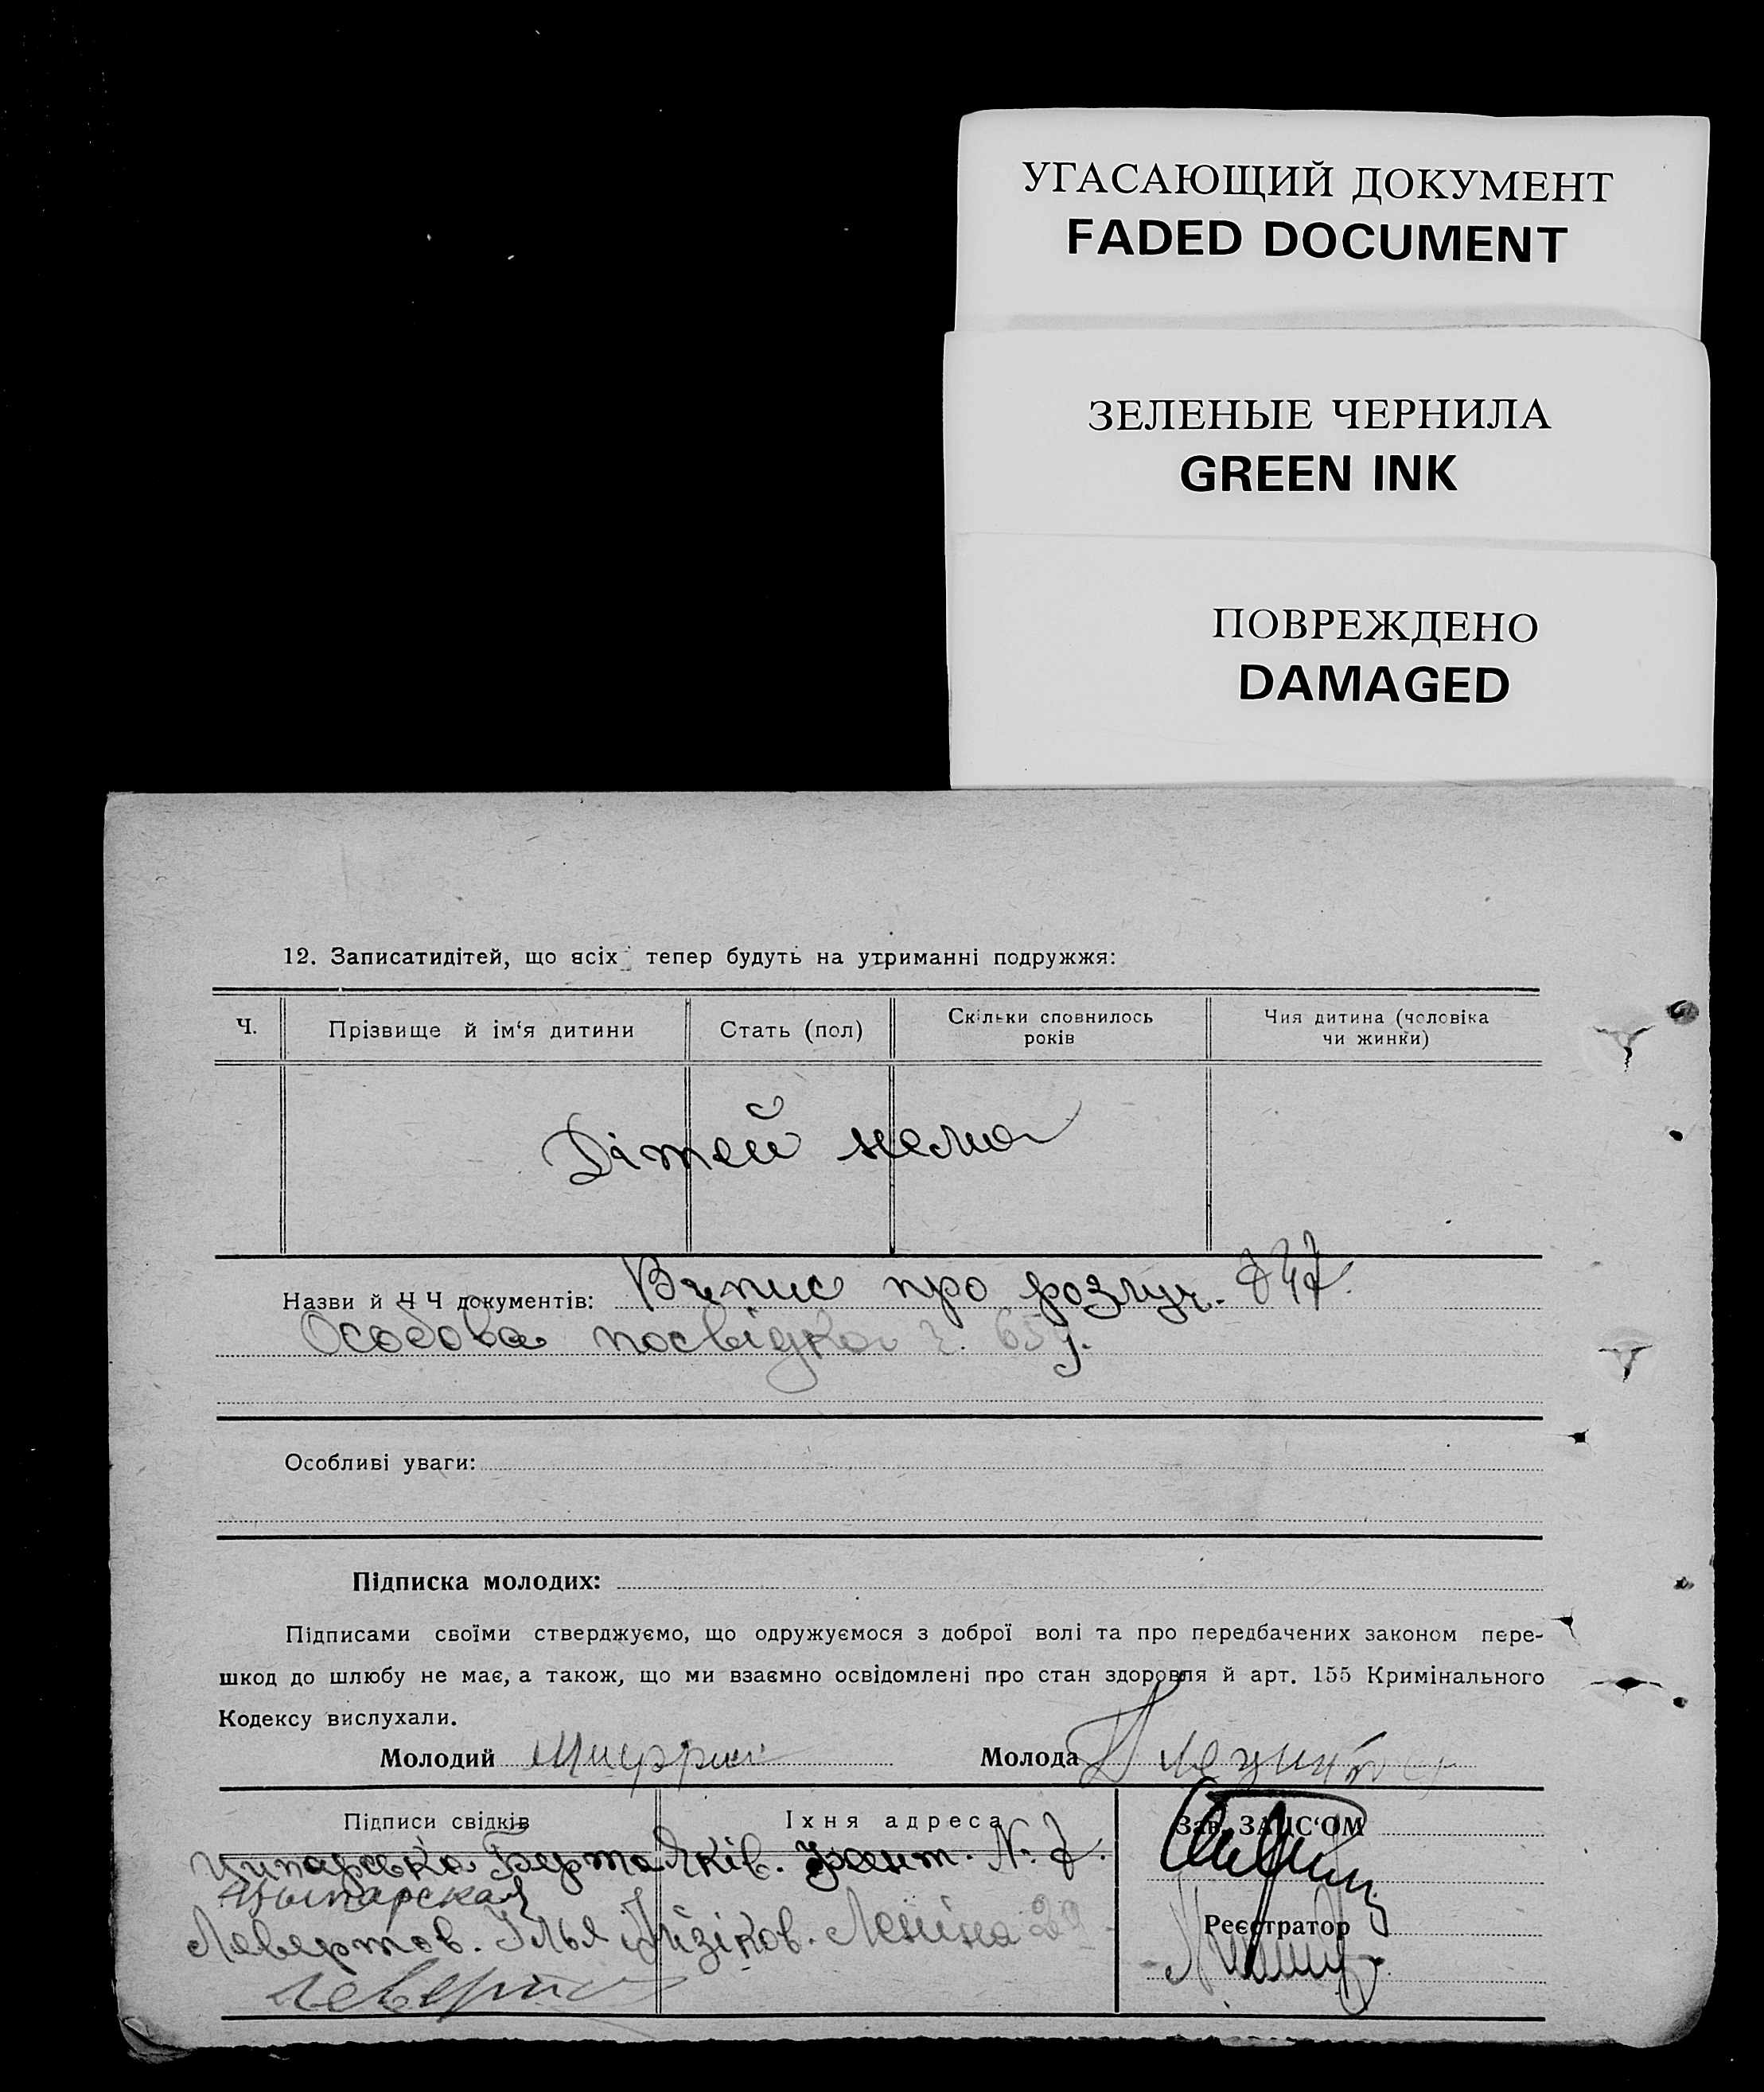 УГАСАЮЩИЙ ДОКУМЕНТ
FADED DOCUMENT
ЗЕЛЕНЫЕ ЧЕРНИЛА
GREEN INK
ПОВРЕЖДЕНО
DAMAGED
12. Записатидітей, що всіх тепер будуть на утриманні подружжя:
Ч. Прізвище й ім‘я дитини Стать (пол) Скільки сповнилось років Чия дитина (чоловіка чи жинки)
Дітей нема
Назви й Ч Ч документів: Випис про розлуч. 747.
Особова посвідка ч. 659.
Особливі уваги:
Підписка молодих:
Підписами своїми стверджуємо, що одружуємося з доброї волі та про передбачених законом пере-
шкод до шлюбу не має, а також, що ми взаємно освідомлені про стан здоровля й арт. 155 Кримінального
Кодексу вислухали.
Молодий Молода
Підписи свідків Їхня адреса Зав. ЗАЦС‘ОМ
Ципарська Берта Яків. Франт. № 7.
Цыпарская
Левертов. Ілья Леніна Реєстратор